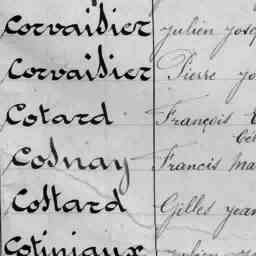 Corvaisier Julien Jose
Corvaisier Pierre Jo
Cotard François
Cosnay Francis Ma
Costard Gilles Jean
Cotiniaux Julien